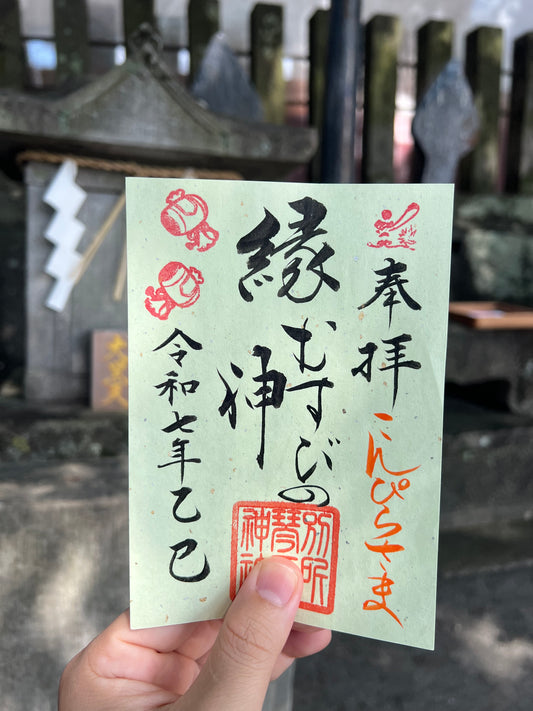 奉拝
こんぴらさま
縁むすびの
神
令和七年乙巳
別所
琴
神